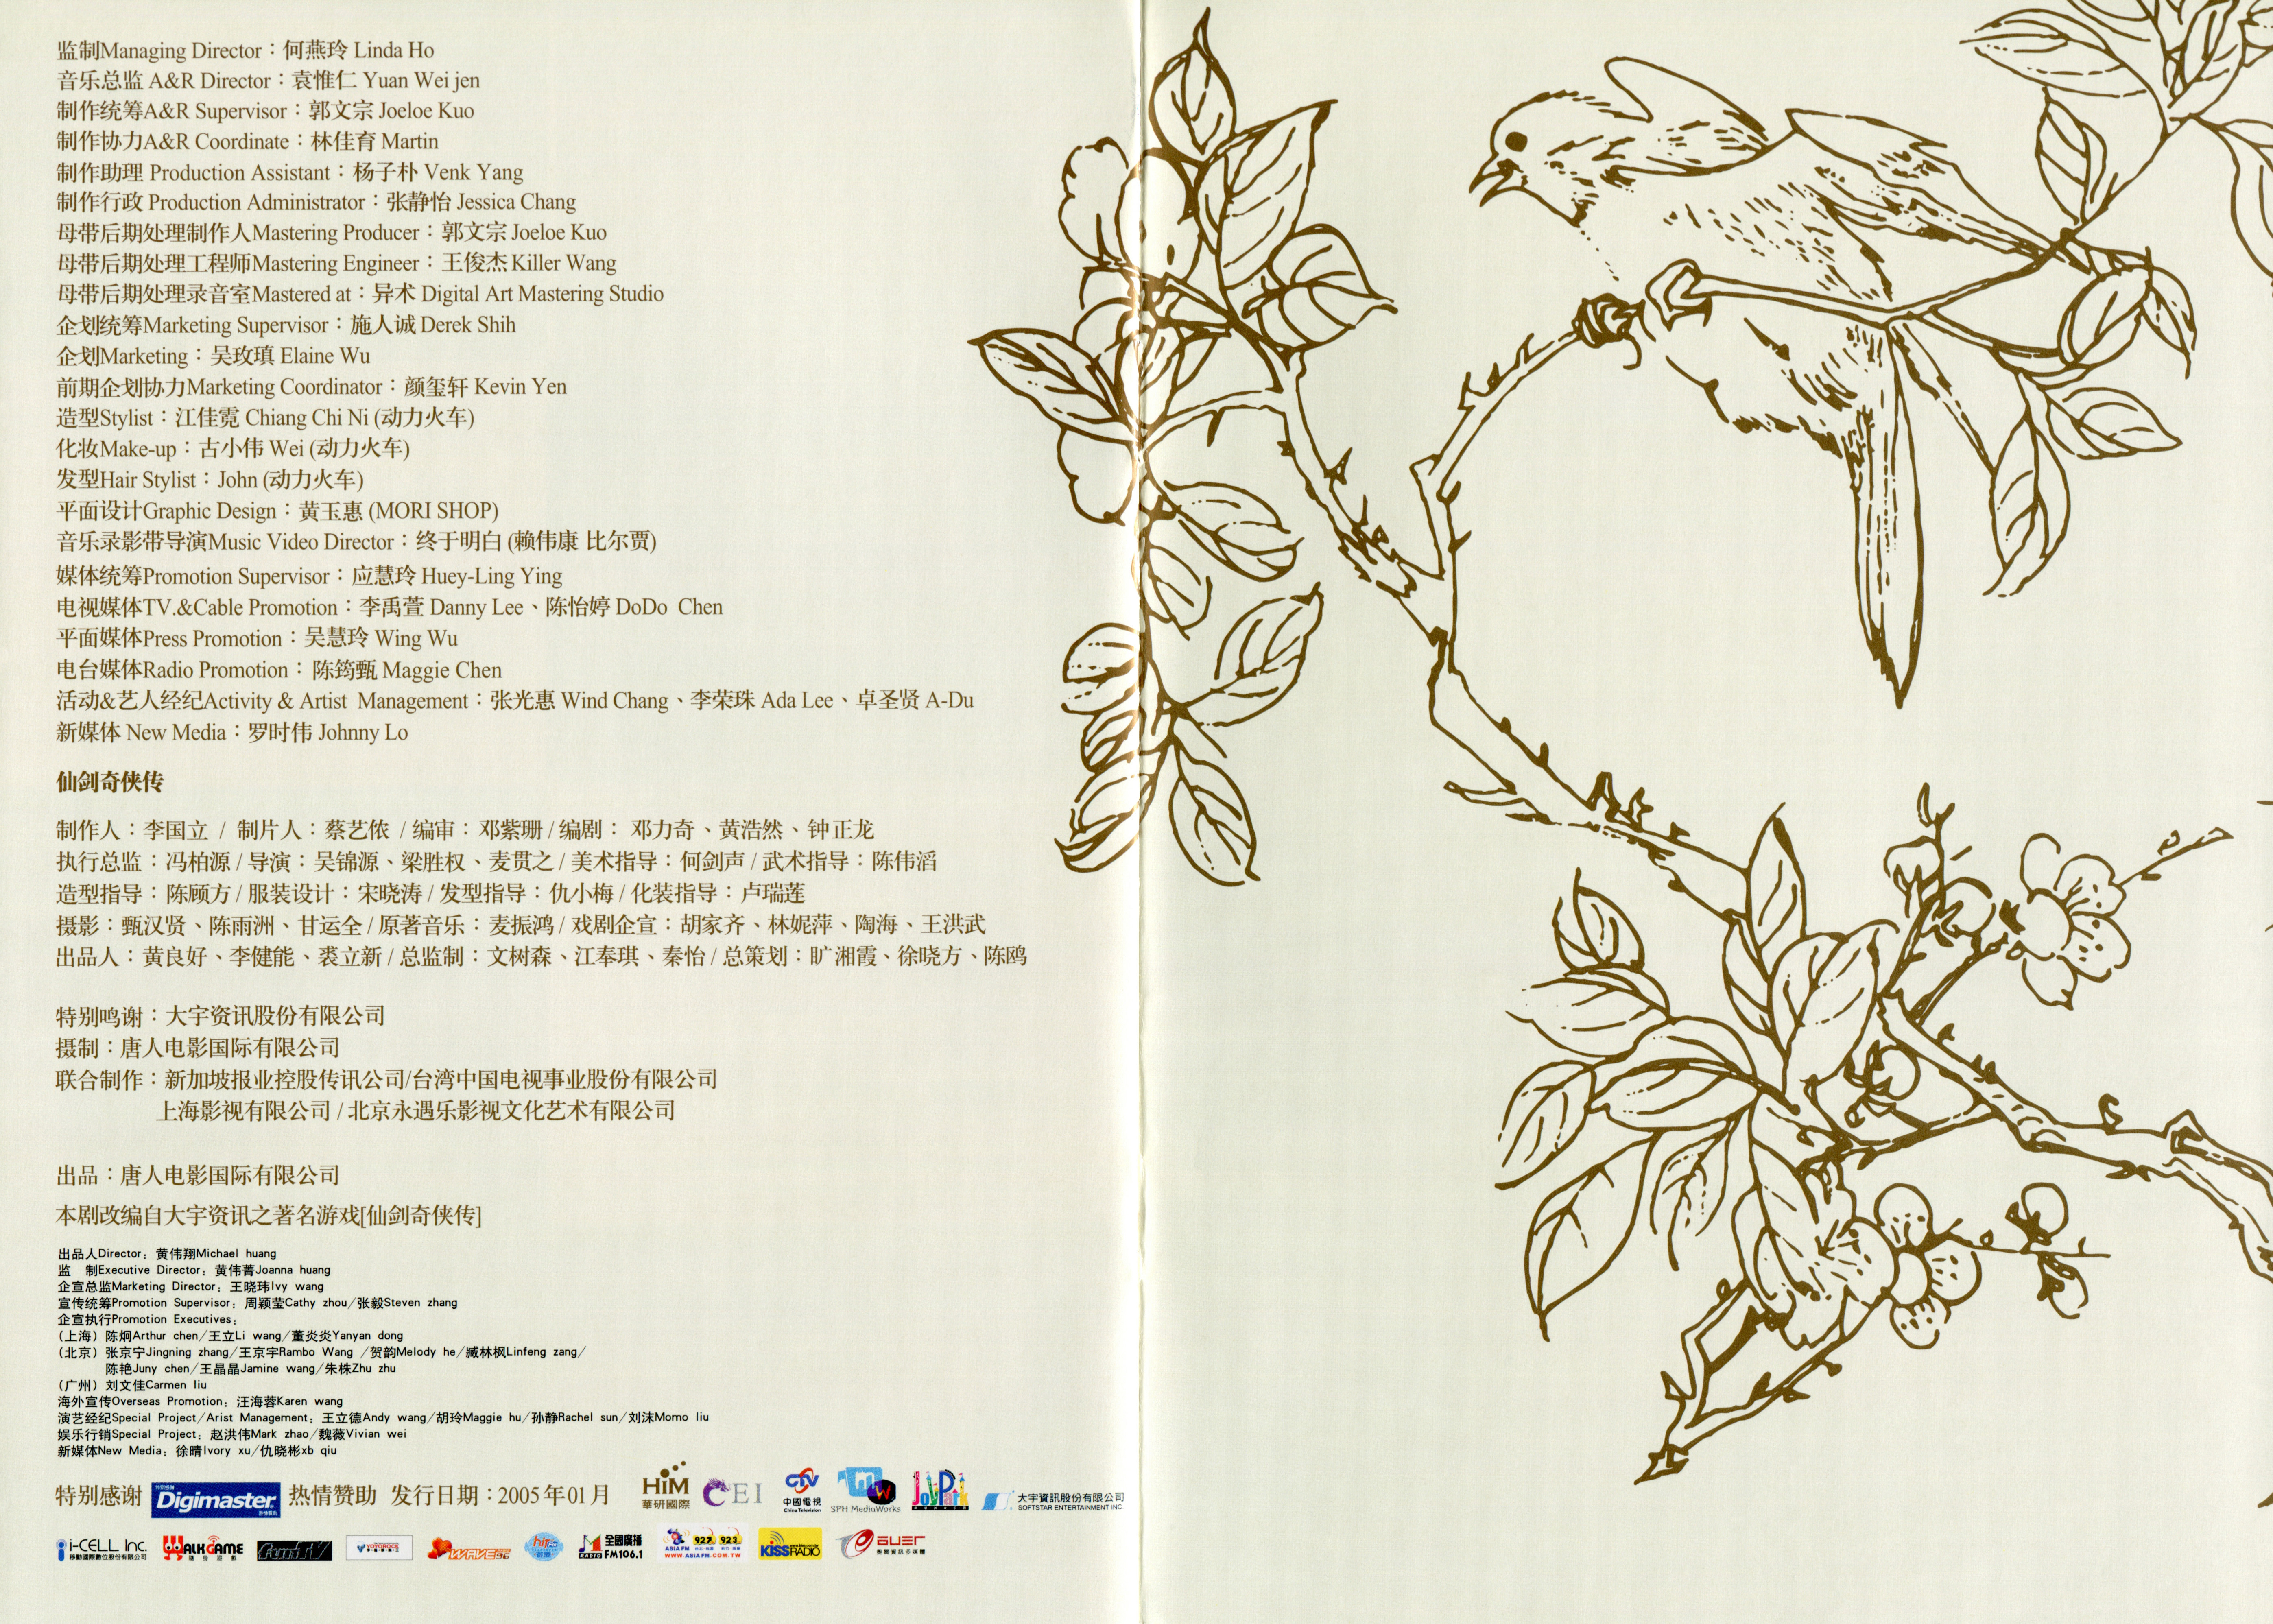 监制Managing Director：何燕玲 Linda Ho
音乐总监 A&R Director：袁惟仁 Yuan Wei jen
制作统筹A&R Supervisor：郭文宗 Joeloe Kuo
制作协力A&R Coordinate：林佳育 Martin
制作助理 Production Assistant：杨子朴 Venk Yang
制作行政 Production Administrator：张静怡 Jessica Chang
母带后期处理制作人Mastering Producer：郭文宗 Joeloe Kuo
母带后期处理工程师Mastering Engineer：王俊杰 Killer Wang
母带后期处理录音室Mastered at：异术 Digital Art Mastering Studio
企划统筹Marketing Supervisor：施人诚 Derek Shih
企划Marketing：吴玫瑱 Elaine Wu
前期企划协力Marketing Coordinator：颜玺轩 Kevin Yen
造型Stylist：江佳霓 Chiang Chi Ni (动力火车)
化妆Make-up：古小伟 Wei (动力火车)
发型Hair Stylist：John (动力火车)
平面设计Graphic Design：黄玉惠 (MORI SHOP)
音乐录影带导演Music Video Director：终于明白 (赖伟康 比尔贾)
媒体统筹Promotion Supervisor：应慧玲 Huey-Ling Ying
电视媒体TV.&Cable Promotion：李禹萱 Danny Lee、陈怡婷 DoDo Chen
平面媒体Press Promotion：吴慧玲 Wing Wu
电台媒体Radio Promotion：陈筠甄 Maggie Chen
活动&艺人经纪Activity & Artist Management：张光惠 Wind Chang、李荣珠 Ada Lee、卓圣贤 A-Du
新媒体 New Media：罗时伟 Johnny Lo
仙剑奇侠传
制作人：李国立 / 制片人：蔡艺侬 / 编审：邓紫珊 / 编剧：邓力奇、黄浩然、钟正龙
执行总监：冯柏源 / 导演：吴锦源、梁胜权、麦贯之 / 美术指导：何剑声 / 武术指导：陈伟滔
造型指导：陈顾方 / 服装设计：宋晓涛 / 发型指导：仇小梅 / 化装指导：卢瑞莲
摄影：甄汉贤、陈雨洲、甘运全 / 原著音乐：麦振鸿 / 戏剧企宣：胡家齐、林妮萍、陶海、王洪武
出品人：黄良好、李健能、裘立新 / 总监制：文树森、江奉琪、秦怡 / 总策划：旷湘霞、徐晓方、陈鸥
特别鸣谢：大宇资讯股份有限公司
摄制：唐人电影国际有限公司
联合制作：新加坡报业控股传讯公司/台湾中国电视事业股份有限公司
上海影视有限公司 / 北京永遇乐影视文化艺术有限公司
出品：唐人电影国际有限公司
本剧改编自大宇资讯之著名游戏[仙剑奇侠传]
出品人Director：黄伟翔Michael huang
监 制Executive Director：黄伟菁Joanna huang
企宣总监Marketing Director：王晓玮Ivy wang
宣传统筹Promotion Supervisor：周颖莹Cathy zhou/张毅Steven zhang
企宣执行Promotion Executives：
(上海) 陈炯Arthur chen/王立Li wang/董炎炎Yanyan dong
(北京) 张京宁Jingning zhang/王京宇Rambo Wang /贺韵Melody he/臧林枫Linfeng zang/
陈艳Juny chen/王晶晶Jamine wang/朱株Zhu zhu
(广州) 刘文佳Carmen liu
海外宣传Overseas Promotion：汪海蓉Karen wang
演艺经纪Special Project/Arist Management：王立德Andy wang/胡玲Maggie hu/孙静Rachel sun/刘沫Momo liu
娱乐行销Special Project：赵洪伟Mark zhao/魏薇Vivian wei
新媒体New Media：徐晴Ivory xu/仇晓彬xb qiu
特别感谢 Digimaster 热情赞助 发行日期：2005年01月 HiM 華研國際 CEI CTV 中國電視 China Television SPH MediaWorks JoyPark 大宇資訊股份有限公司 SOFTSTAR ENTERTAINMENT INC.
i-CELL Inc. 移動國際數位股份有限公司 WALKGAME 隨身遊戲 funTV WAVE 96 hitFM 全國廣播 RADIO FM106.1 ASIA FM 927 923 WWW.ASIAFM.COM.TW KISS RADIO auer